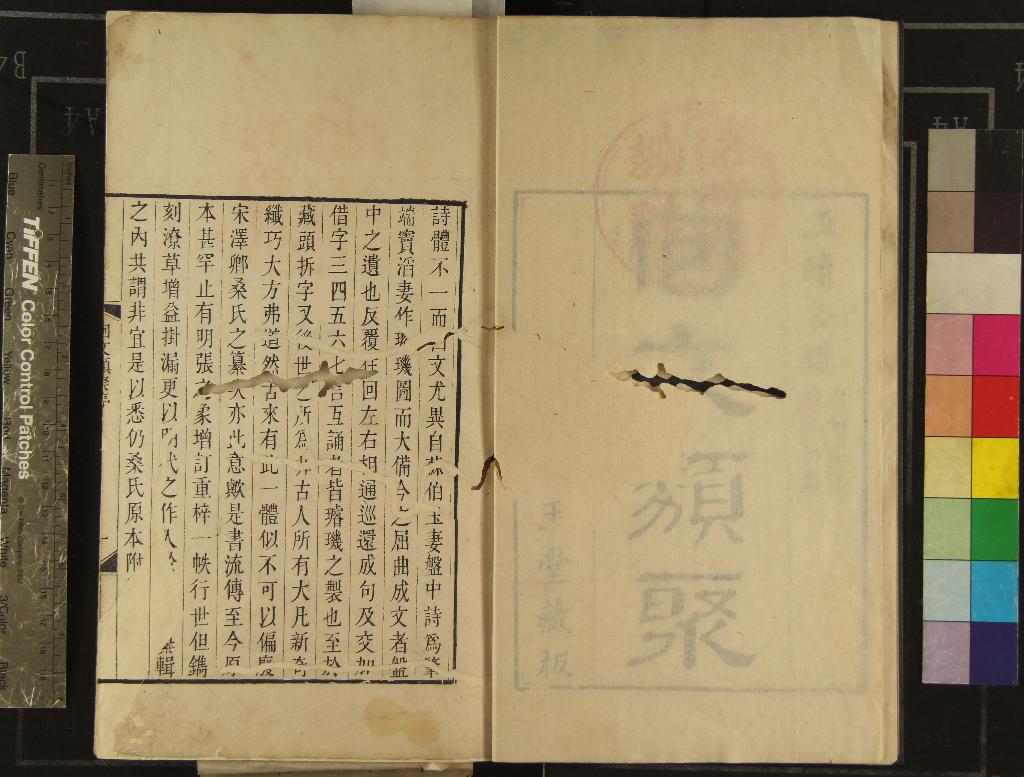 詩體不一而文尤異自蘇伯玉妻盤中詩爲肇
端竇滔妻作璇璣圖而大備今之屈曲成文者盤
中之遺也反覆往回左右相通巡還成句及交加
借字三四五六七言互誦者皆璿璣之製也至於
藏頭拆字又後世之所爲非古人所有大凡新奇
纖巧大方弗道然古來有此一體似不可以偏廢
宋澤卿桑氏之纂次亦此意歟是書流傳至今原
本甚罕止有明張之象增訂重梓一帙行世但鐫
刻潦草增益掛漏更以明代之作入於輯
之內共謂非宜是以悉仍桑氏原本附
回文類聚
玉堂藏板
TIFFEN Color Control Patches
Centimetres
Inches
Blue
Cyan
Green
Yellow
Red
Magenta
White
3/Color
Black
A4
A4
B4
A4